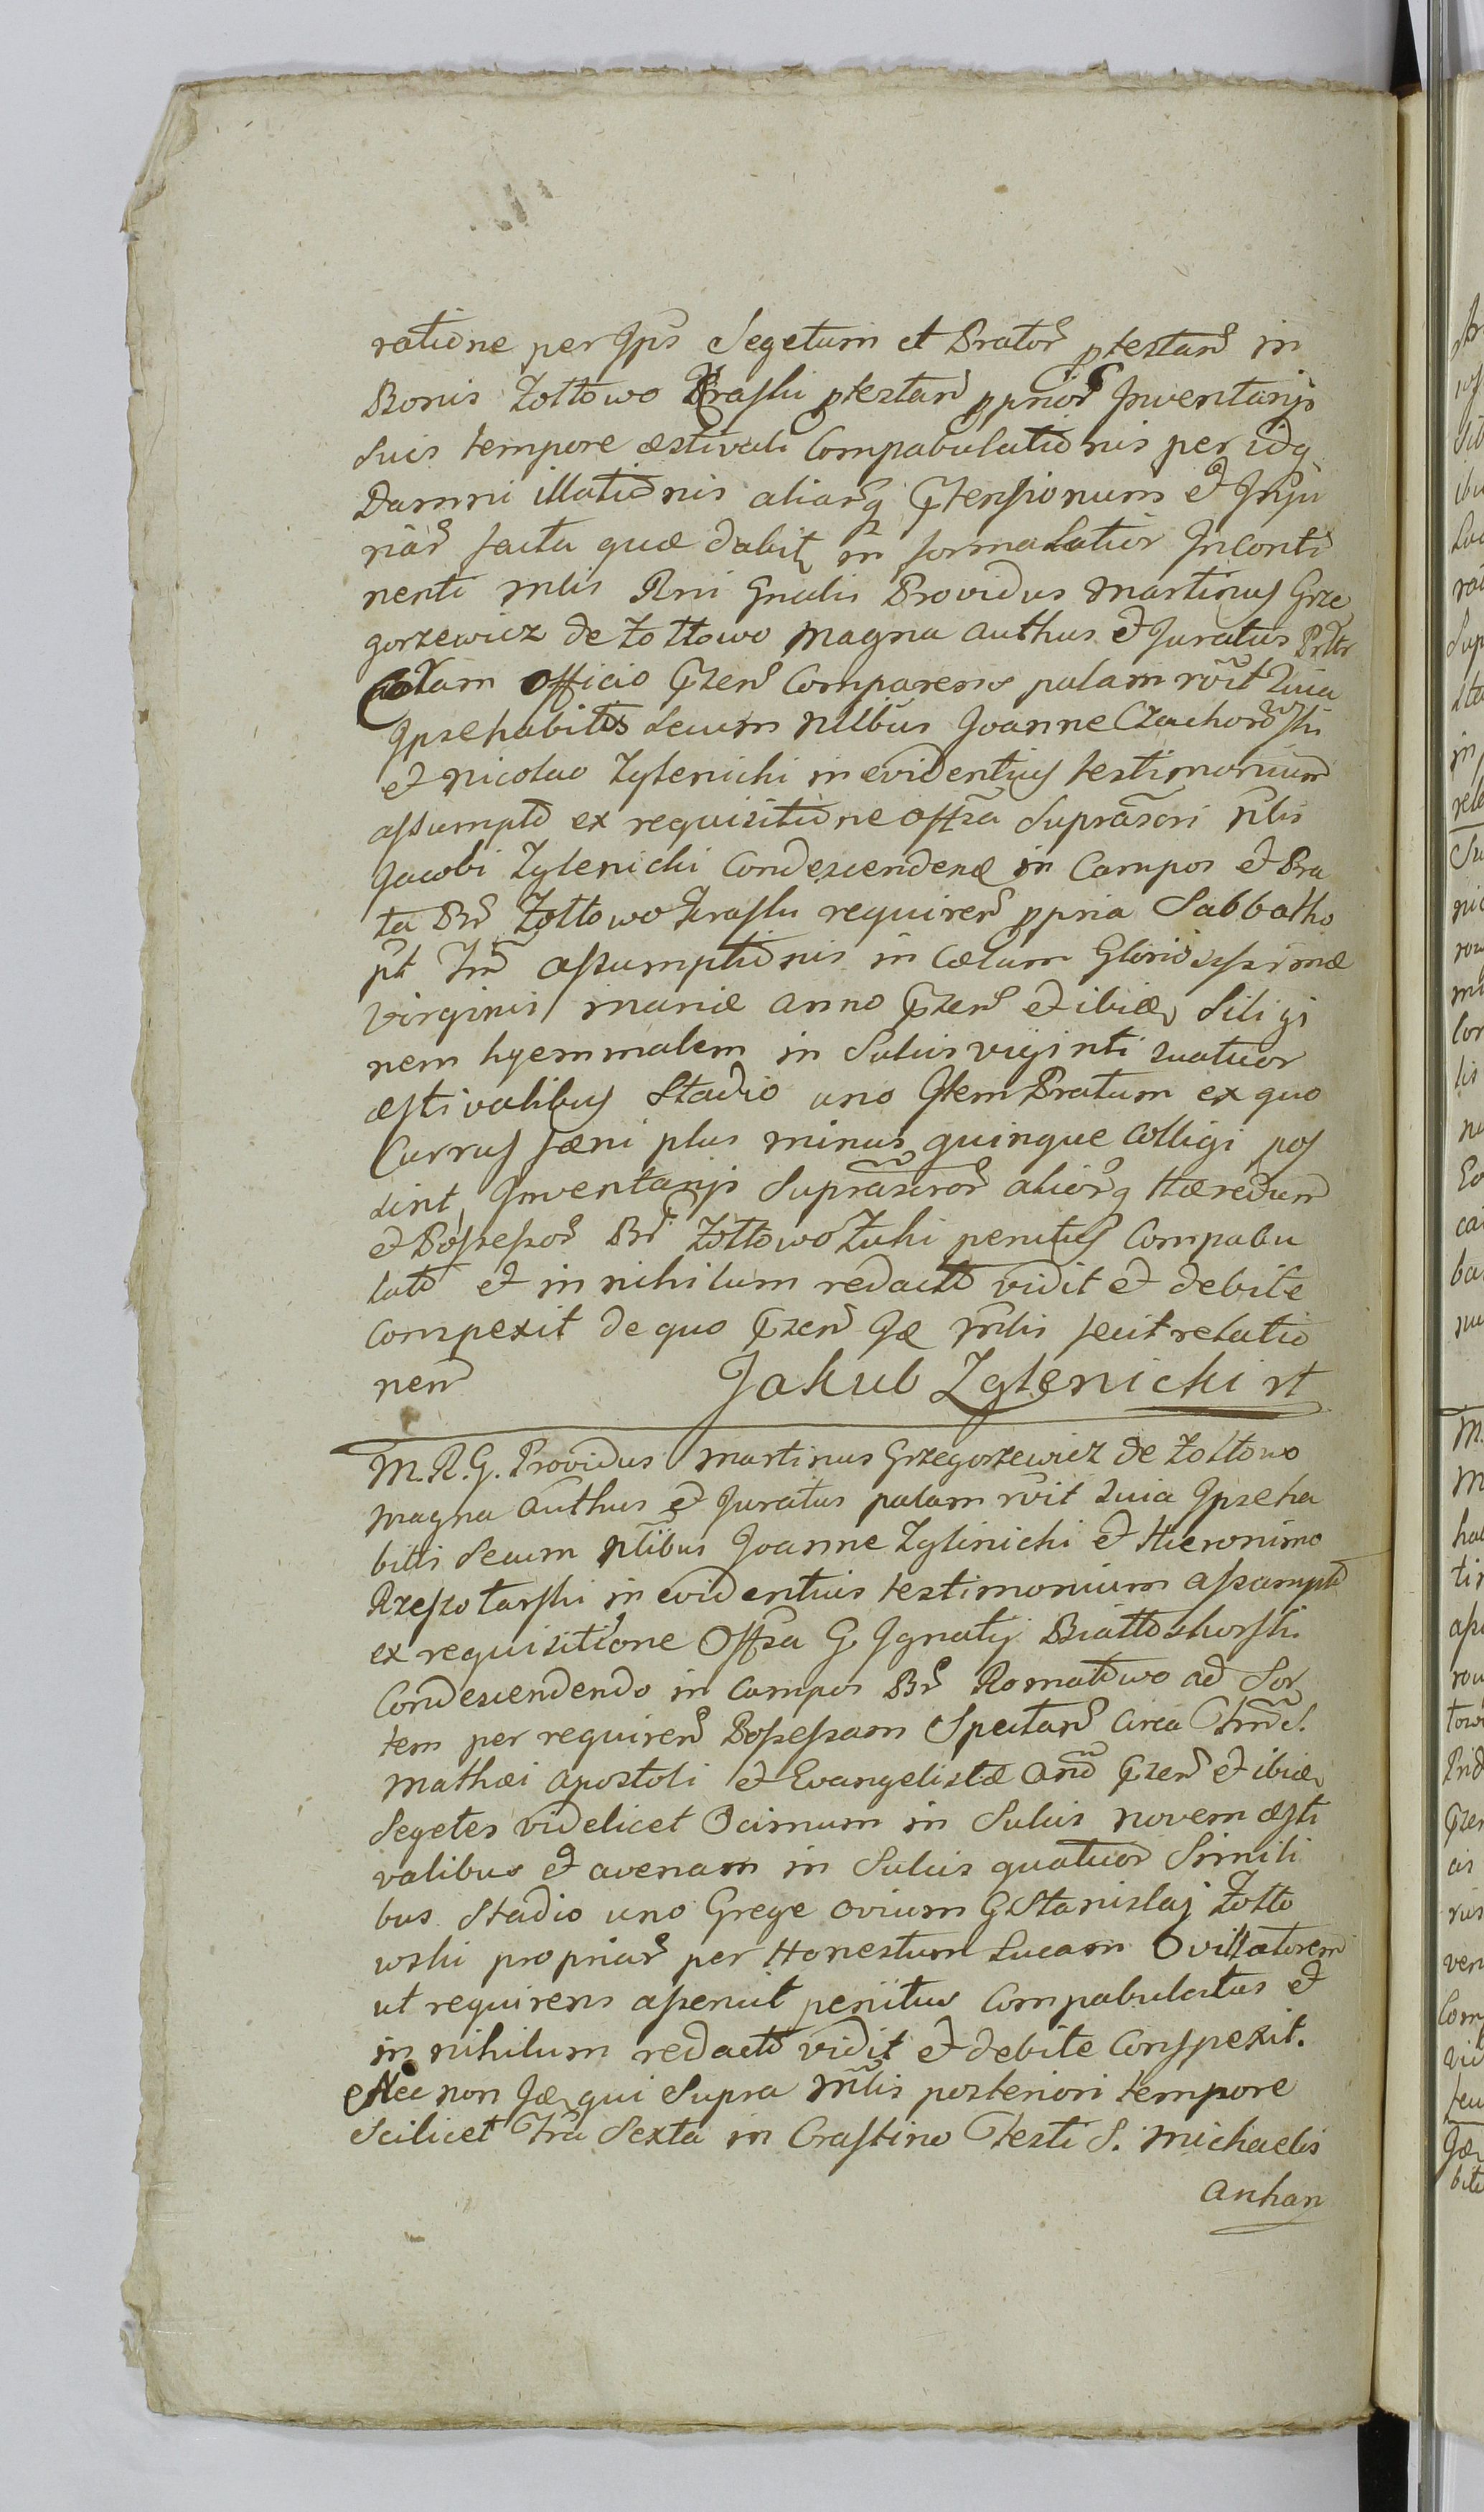 ratione per Ips Segetum et Prator ptestan in
Bonis Zottowo Kraski ptestan pprior Inventarijs
Suis tempore æstivali Compabulationis per idq
Damni illationis aliarq Prtensionum et Inju
riar facta quæ dabit in forma Latior Inconti
nenti Mlis Rni Gnalis Providus Martinus Grze
gorzewicz de Zottowo Magna authus et Juratus
Coram Officio Przen Comparens palam roīt Quia
Ipse habitis Secum Nllbus Joanne Czachorowski
et Nicolao Zglenicki in evidentius testimonium
assumptis ex requisitione Offsa Suprascri Nlis
Jacobi Zglenicki Condescenden in Campos et Pra
ta Br Zottowo Kraski requiren ppria Sabbatho
pt Fm assumptionis in Cælum Gloriosissimæ
Virginis Mariæ anno Przen et ibidem Sili gi
nem hyemmalem in Sulcis viginti quatuor
æstivalibus Stadio uno Item Pratum ex quo
Currus fæni plus minus quinque Colligi pos
sint, Inventarijs Suprascror aliorq Hæredum
et Possessor Br Zottowo Zuki penitus Compabu
lato et in nihilum redacto vidit et debite
Compexit de quo Przen Idem Mlis fecit relatio
nem Jakub Zglenicki rt
M. R. G. Providus Martinus Grzegorzewicz de Zottowo
Magna authus et Juratus palam roīt Quia Ipse ha
bitis Secum Nlibus Joanne Zglinicki et Hieronimo
Rzeszotarski in evidentius testimonium assumptis
ex requisitione Offsa G. Ignatij Biattoskorski
Condescendendo in Campos Br Romatowo ad Sor
tem per requiren Possessam Spectan Circa Fm S.
Mathæi Apostoli et Evangelistæ Anno Przen et ibidem
Segetes videlicet Ocimum in Sulcis novem æsti
valibus et avenam in Sulcis quatuor Simili
bus Stadio uno Grege ovium G Stanislaj Zotto
wski propriar per Honestum Lucam Ovillatorem
ut requirens asseruit penitus Compabulatas et
in nihilum redacto vidit et debite Conspexit.
Nec non Idem qui Supra Mlis posteriori tempore
Scilicet Fria Sexta in Crastino Festi S. Michaelis
Arhan